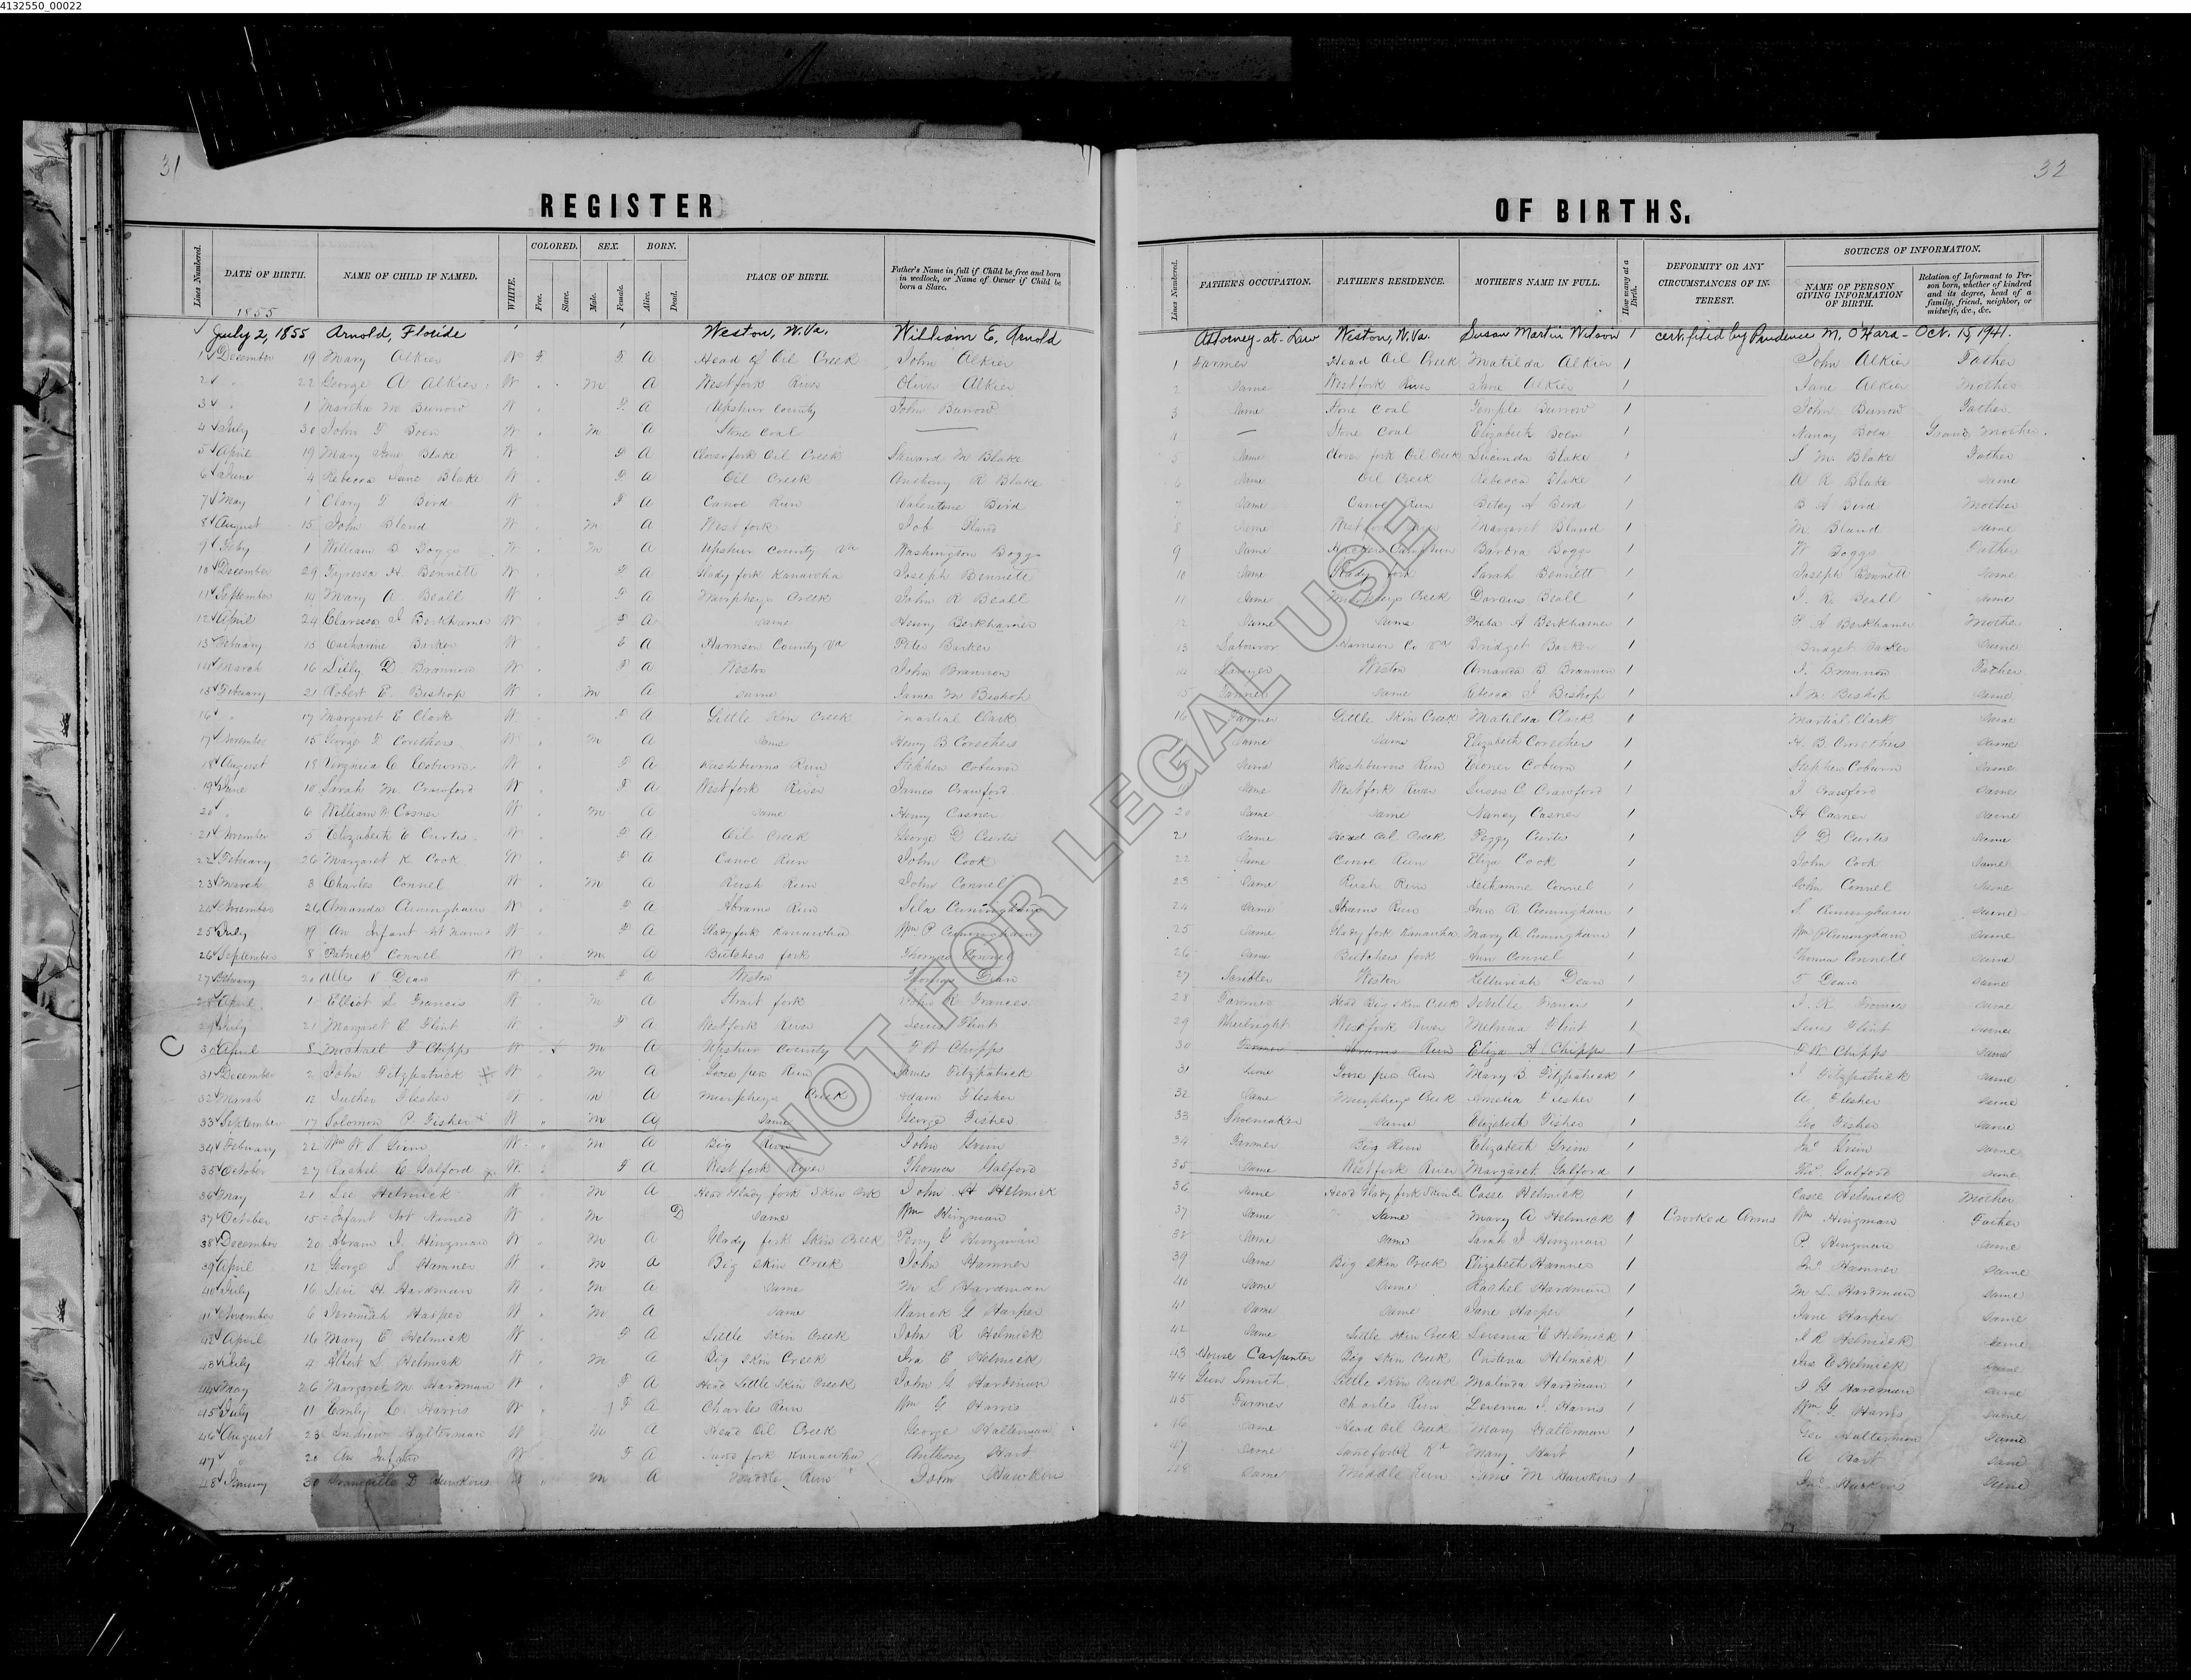 4132550_00022
31
32
REGISTER OF BIRTHS.
Lines Numbered. DATE OF BIRTH. NAME OF CHILD IF NAMED. WHITE. COLORED. Free. Slave. SEX. Male. Female. BORN. Alive. Dead. PLACE OF BIRTH. Father's Name in full if Child be free and born in wedlock, or Name of Owner if Child be born a Slave. Lines Numbered. FATHER'S OCCUPATION. FATHER'S RESIDENCE. MOTHER'S NAME IN FULL. How many at a Birth. DEFORMITY OR ANY CIRCUMSTANCES OF INTEREST. SOURCES OF INFORMATION. NAME OF PERSON GIVING INFORMATION OF BIRTH. Relation of Informant to Person born, whether of kindred and its degree, head of a family, friend, neighbor, or midwife, &c., &c.
1855
July 2, 1855 Arnold, Floride ' ' Weston, W.Va. William E. Arnold Attorney-at-Law Weston, W.Va. Susan Martin Wilson 1 certified by Prudence M. O'Hara - Oct. 15, 1941.
1 December 19 Mary Alkier W F F A Head of Oil Creek John Alkier 1 Farmer Head Oil Creek Matilda Alkier 1 John Alkier Father
2 " 22 George A Alkier W M A Westfork River Oliver Alkier 2 Same Westfork River Jane Alkier 1 Jane Alkier Mother
3 " 1 Martha M Burrow W F A Upshur County John Burrow 3 Same Stone Coal Temple Burrow 1 John Burrow Father
4 July 30 John T Boen W M A Stone Coal — 4 — Stone Coal Elizabeth Boen 1 Nancy Boen Grand Mother
5 April 19 Mary Jane Blake W F A Clover fork Oil Creek Steward M Blake 5 Same Clover fork Oil Creek Lucinda Blake 1 S M Blake Father
6 June 4 Rebecca Jane Blake W F A Oil Creek Anthony R Blake 6 Same Oil Creek Rebecca Blake 1 A R Blake Same
7 May 1 Clary F Bird W F A Canoe Run Valentine Bird 7 Same Canoe Run Betsy A Bird 1 B A Bird Mother
8 August 15 John Bland W M A West fork Job Bland 8 Same West fork Margaret Bland 1 M Bland Same
9 Feby 1 William B Boggs W M A Upshur County Va Washington Boggs 9 Same Barbra Boggs 1 W Boggs Father
10 December 29 H. Bennett W F A Glady fork Kanawha Joseph Bennett 10 Same Glady fork Sarah Bennett 1 Joseph Bennett Same
11 September 14 Mary A. Beall W F A Murpheys Creek John R Beall 11 Same Murpheys Creek Beall 1 J. R. Beall Same
12 April 24 Clarissa J Berkhamer W F A Same Henny Berkhamer 12 Same Same A Berkhamer 1 A Berkhamer Mother
13 February 15 Catharine Barker W F A Harrison County Va Peter Barker 13 Labouror Harrison Co Va Bridget Barker 1 Bridget Barker Same
14 March 16 Lilly D Brannon W F A Weston John Brannon 14 Lawyer Weston Amanda B Brannon 1 J. Brannon Father
15 February 21 Robert E. Bishop W M A Same James M Bishop 15 Tanner Same Rebecca J Bishop 1 J M Bishop Same
16 " 17 Margaret E Clark W F A Little Skin Creek Martial Clark 16 Farmer Little Skin Creek Matilda Clark 1 Martial Clark Same
17 November 15 George D Corethers W M A Same Henry B Corethers Same Same Elizabeth Corethers 1 H. B. Corethers Same
18 August 18 Virginia C Coburn W F A Washburns Run Stephen Coburn Same Washburns Run Coburn 1 Stephen Coburn Same
19 June 10 Sarah M Crawford W F A Westfork River James Crawford Same Westfork River Susan C Crawford 1 J Crawford Same
20 " 6 William W Casner W M A Same Henry Casner 20 Same Same Nancy Casner 1 H Casner Same
21 November 5 Elizabeth E Curtis W F A Oil Creek George D Curtis 21 Same Head Oil Creek Peggy Curtis 1 G D Curtis Same
22 February 26 Margaret K. Cook W F A Canoe Run John Cook 22 Same Canoe Run Eliza Cook 1 John Cook Same
23 March 3 Charles Connel W M A Rush Run John Connel 23 Same Rush Run Connel 1 John Connel Same
24 November 26 Amanda Cuningham W F A Abrams Run Silas Cuningham 24 Same Abrams Run Ann R. Cuningham 1 S. Cuningham Same
25 July 19 An Infant not named W F A Glady fork Kanawha Wm P Cuningham 25 Same Glady fork Kanawha Mary A Cuningham 1 Wm P Cuningham Same
26 September 8 Patrick Connel W M A Butchers fork Thomas Connel 26 Same Butchers fork Ann Connel 1 Thomas Connell Same
27 20 V Dean W F A Weston Dean 27 Saddler Weston Dean 1 F Dean Same
28 April 1 Elliot L Francis W M A Strait fork John R Frances 28 Farmer Head Big Skin Creek Francis 1 J. R. Frances Same
29 July 21 Margaret E Flint W F A Westfork River Lewis Flint 29 Wheelright Westfork River Melvina Flint 1 Lewis Flint Same
C 30 April 8 Michael F Chipps W M A Upshur County F W Chipps 30 Farmer Abrams Run Eliza A Chipps 1 F W Chipps Same
31 December 2 John Fitzpatrick W M A Goose pen Run James Fitzpatrick 31 Same Goose pen Run Mary B. Fitzpatrick 1 J Fitzpatrick Same
32 March 12 Luther Flesher W M A Murpheys Creek Adam Flesher 32 Same Murpheys Creek Amelia Flesher 1 A. Flesher Same
33 September 17 Solomon P. Fisher W M A Same George Fisher 33 Shoemaker Same Elizabeth Fisher 1 Geo Fisher Same
34 February 22 Wm W. S Grim W M A Big Run John Grim 34 Farmer Big Run Elizabeth Grim 1 Jno Grim Same
35 October 27 Rachel C Galford W F A Westfork River Thomas Galford 35 Same Westfork River Margaret Galford 1 Thos Galford Same
36 May 21 Lee Helmick W M A Head Glady fork Skin Crk John H Helmick 36 Same Head Glady fork Skin Cr Casse Helmick 1 Casse Helmick Mother
37 October 15 Infant Not Named W M D Same Wm Hinzman 37 Same Same Mary A Helmick 1 Crooked Arms Wm Hinzman Father
38 December 20 Abram J. Hinzman W M A Glady fork Skin Creek Perry G Hinzman 38 Same Same Sarah J Hinzman 1 P. Hinzman Same
39 April 12 George S Hamner W M A Big Skin Creek John Hamner 39 Same Big Skin Creek Elizabeth Hamner 1 Jno Hamner Same
40 July 16 Levi H. Hardman W M A Same M L Hardman 40 Same Same Rachel Hardman 1 M L. Hardman Same
41 November 6 Jeremiah Harper W M A Same G Harper 41 Same Same Jane Harper 1 Jane Harper Same
42 April 16 Mary E Helmick W F A Little Skin Creek John R Helmick 42 Same Little Skin Creek E Helmick 1 J R Helmick Same
43 July 4 Albert S. Helmick W M A Big Skin Creek Ira E Helmick 43 House Carpenter Big Skin Creek Cristena Helmick 1 Ira E Helmick Same
44 May 26 Margaret M Hardman W F A Head Little Skin Creek John G Hardman 44 Gun Smith Little Skin Creek Malinda Hardman 1 J G Hardman Same
45 July 11 Emily C. Harris W F A Charles Run Wm G Harris 45 Farmer Charles Run J. Harris 1 Wm G. Harris Same
46 August 23 Andrew Halterman W M A Head Oil Creek George Halterman 46 Same Head Oil Creek Mary Halterman 1 Geo Halterman Same
47 " 20 An Infant W F A Sand fork Kanawha Anthony Hart 47 Same Sand fork Ka Mary Hart 1 A Hart Same
48 January 30 D Hawkins W M A Middle Run John Hawkins 48 Same Middle Run Jane M Hawkins 1 Jno Hawkins Same
NOT FOR LEGAL USE